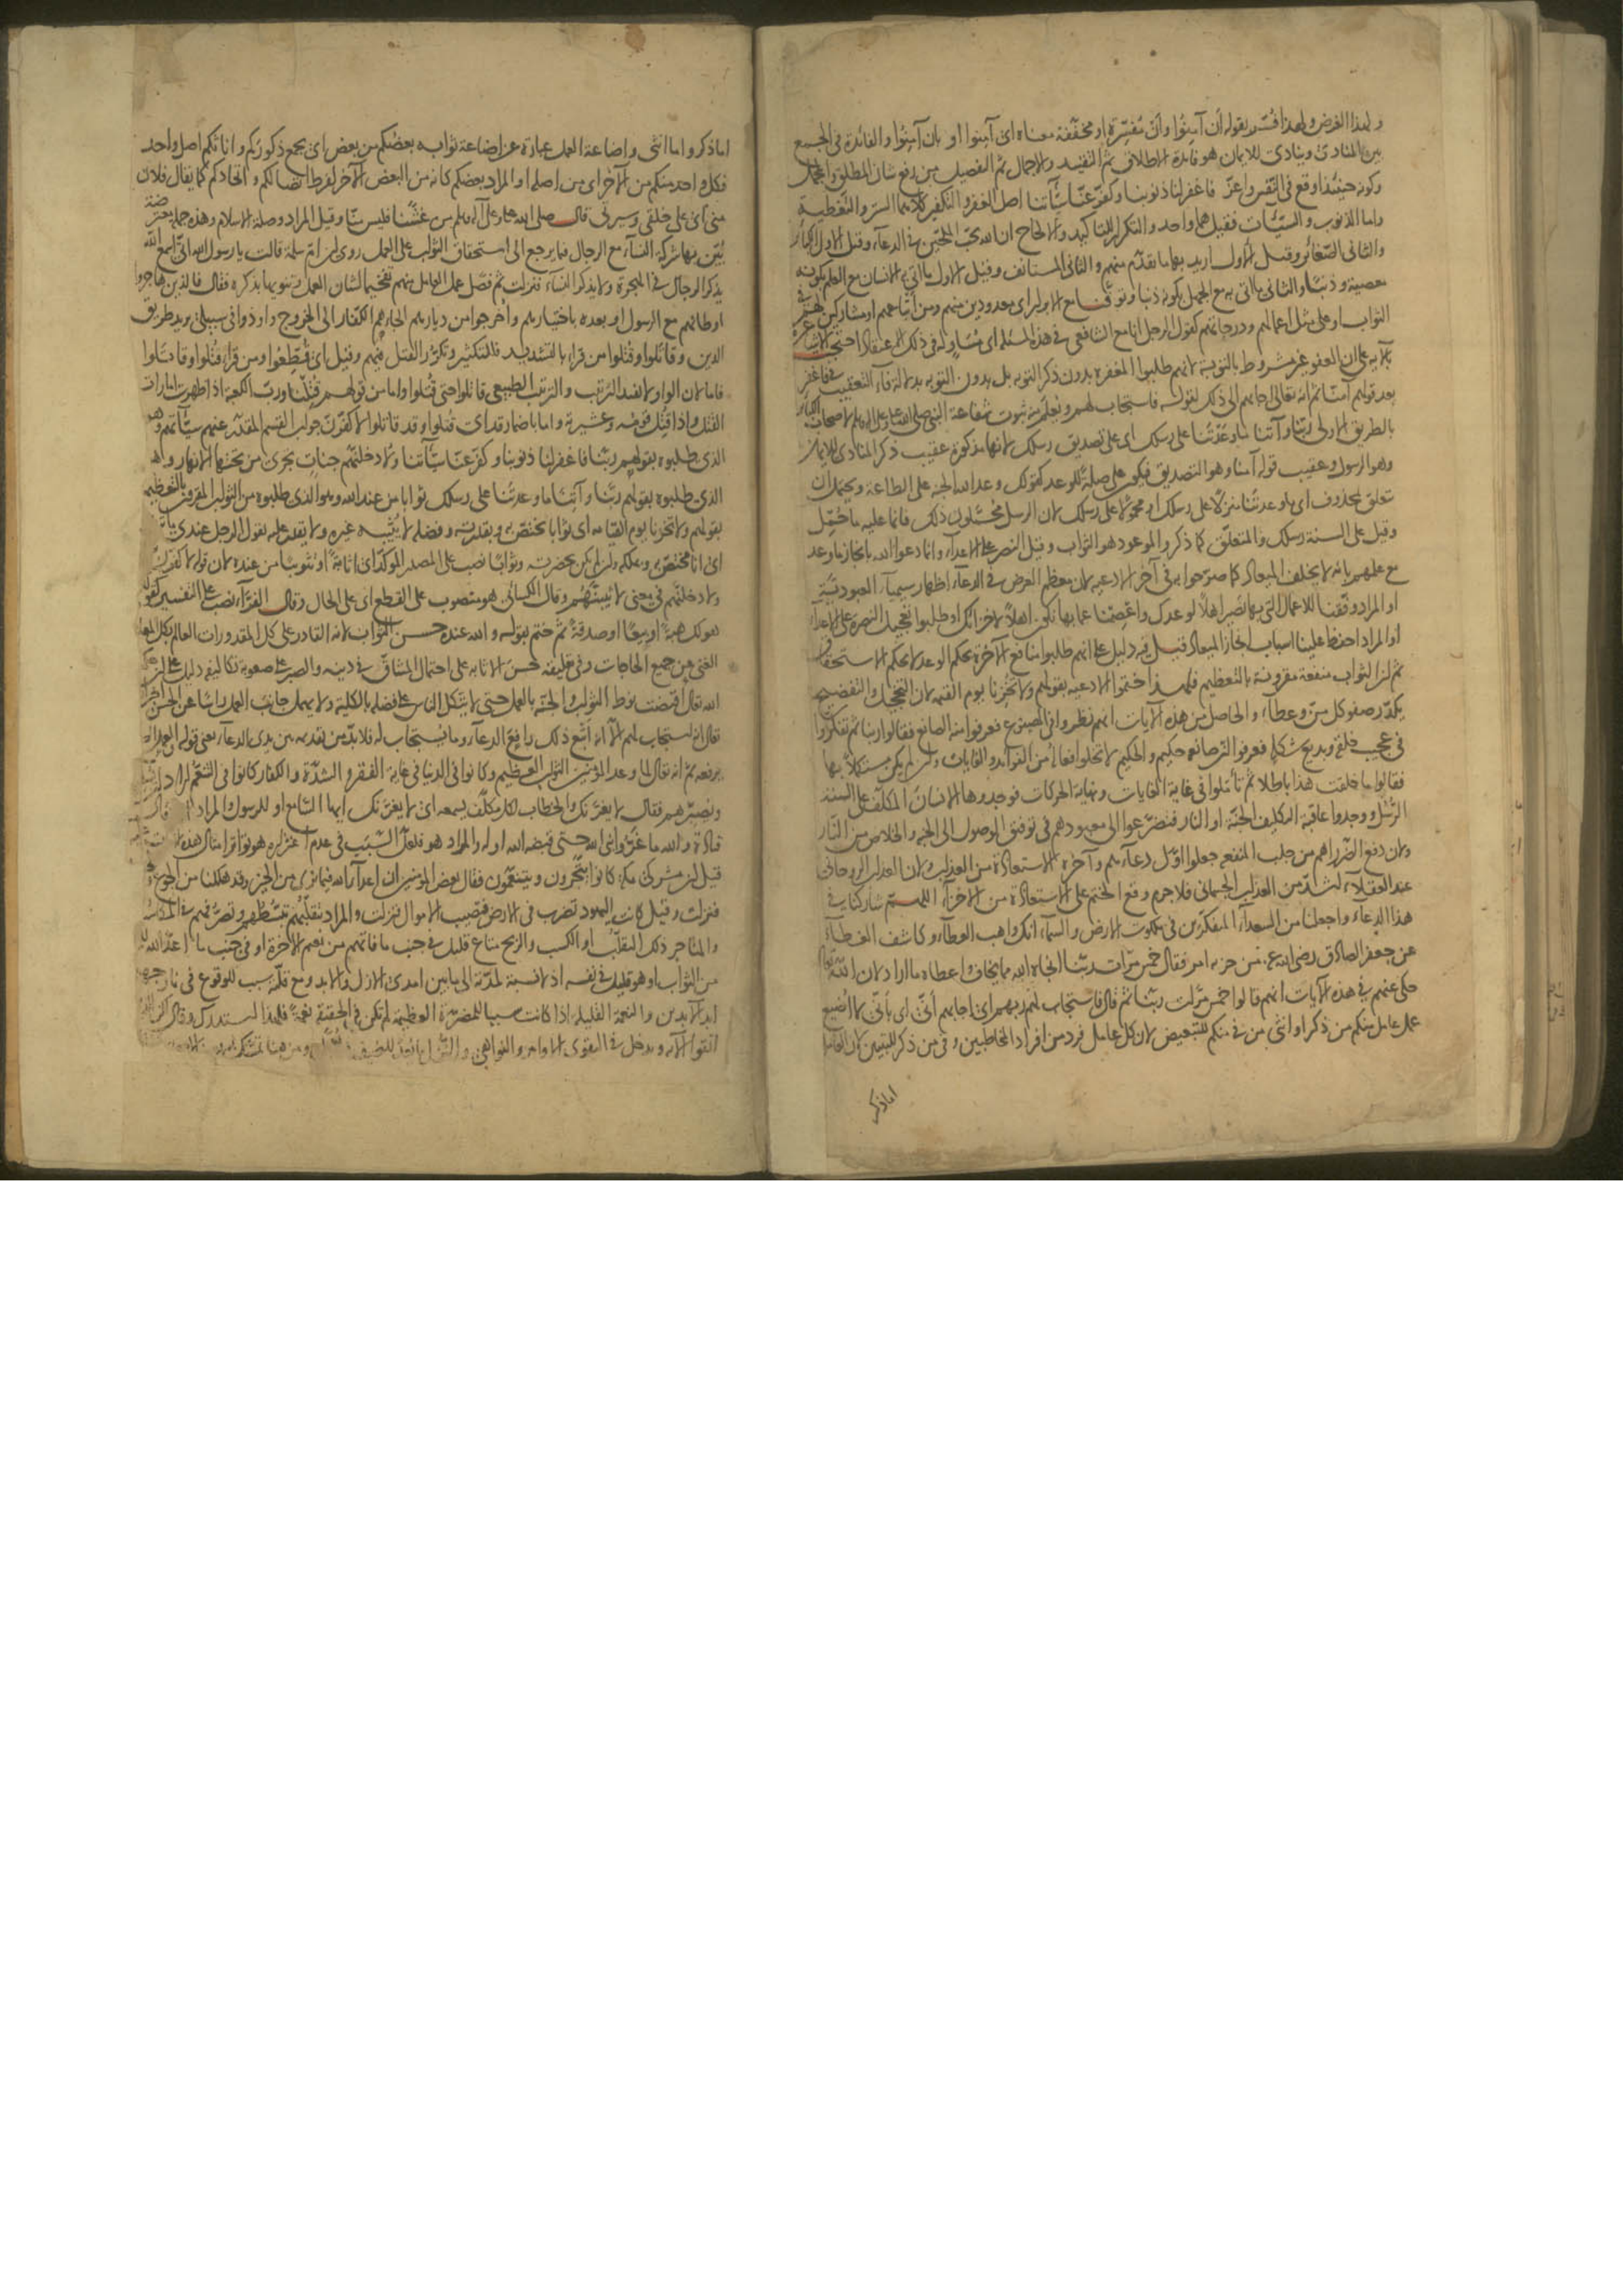 ولهذا الغرض ولهذا فسر بقوله أن آمِنُوا وأن مُفسِّرة او مخففة معناه اى آمنوا او بان آمِنُوا والفائدة فى الجمع
بين المنادى وينادى للايمان هو فائدة الاطلاق ثم التقييد والاجمال ثم التفصيل من رفع شان المطلق والمجمل
وكونه حينئذ اوقع فى النفس واعز فاغفر لنا ذنوبنا وكفّر عنّا سيّآتنا اصل الغفر والتكفير كلاهما الستر والتغطية
واما الذنوب والسيّئات فقيل هما واحد والتكرار للتاكيد والالحاح ان الله يحب الملحّين فى الدعآء وقيل الاول الكبائر
والثانى الصّغائر وقيل الاول اريد بهما ما تقدّم منهم والثانى المستانف وقيل الاول ما اتى به الانسان مع العلم بكونه
معصية وذنبًا والثانى ما اتى به مع الجهل بكونه ذنبا وتوفّنا مع الابرار اى معدودين منهم ومن اتباعهم او مشاركين لهم فى
الثواب او على مثل اعمالهم ودرجاتهم كقول الرجل انا مع الشافعى فى هذه المسئلة اى مُساوٍ له فى ذلك الاعتقاد احتجت الاشاعرة
بالآية على ان العفو غير مشروط بالتوبة لانهم طلبوا المغفرة بدون ذكر التوبة بل بدون التوبة بدلالة فآء التعقيب فى فاغفر
بعد قولهم آمنّا ثم انه تعالى اجابهم الى ذلك لقوله فاستجاب لهم ويعلم منه ثبوت شفاعة النبى صلى الله عليه وعلى آله وسلم لاصحاب الكبائر
بالطريق الاولى ربّنا وآتنا ما وَعَدْتَنا على رسلك اى على تصديق رسلك لانها مذكورة عقيب ذكر المنادى للايمان
وهو الرسول وعقيب قوله آمنا وهو التصديق فيكون على صلةً للوعد كقولك وعد الله الجنة على الطاعة ويحتمل ان
تتعلق بمحذوف اى ما وعدتنا منزلا على رسلك او محمولا على رسلك لان الرسل مُحَمَّلون ذلك فانما عليه ما حُمِّل
وقيل على السنة رسلك والمتعلّق كما ذكر والموعود هو الثواب وقيل النصر على الاعدآء وانما دعوا الله بانجاز ما وعد
مع علمهم بانه لا يخلف الميعاد كما صرّحوا به فى آخر الادعيه لان معظم الغرض فى الدعآء اظهار سيمآء العبوديّة
او المراد وفّقنا للاعمال التى بها نَصير اهلًا لوعدك واعصمنا عما بها نكون اهلًا لاخزائك او طلبوا تعجيل النصرة على الاعدآء
او المراد احفظ علينا اسباب انجاز الميعاد قيل وفيه دليل على انهم طلبوا منافع الآخرة بحكم الوعد لا بحكم الاستحقاق
ثم لان الثواب منفعة مقرونة بالتعظيم فلهذا ختموا الادعيه بقولهم ولا تُخْزِنا يوم القيمة لان التخجيل والتفضيح
يكدّر صفو كل مَنٍّ وعطآء والحاصل من هذه الآيات انهم نظروا فى المصنوع فعرفوا منه الصانع فقالوا ربنا ثم تفكّروا
فى عجيب خلقه وبديع شكله فعرفوا ان صانعه حكيم والحكيم لا تخلوا افعاله من الفوآئد والغايات وان لم يكن مستكملًا بها
فقالوا ما خلقت هذا باطلا ثم تأمّلوا فى غاية الغايات ونهاية الحركات فوجدوها الانسان المكلّف على السنة
الرسل ووجدوا عاقبة التكليف الجنّة او النار فتضرّعوا الى معبودهم فى توفيق الوصول الى الجنة والخلاص من النّار
ولان دفع الضّرر اهم من جلب المنفعه جعلوا اوّل دعآءهم وآخره الاستعاذة من العذاب ولان العذاب الروحانى
عند العقلآء اشدّ من العذاب الجسمانى فلا جرم وقع الختم على الاستعاذة من الاخزآء اللهمّ شاركنا فى
هذا الدعآء واجعلنا من السعدآء المتفكّرين فى ملكوت الارض والسمآء انك واهب العطآء وكاشف الغطآء
عن جعفر الصادق رضى الله عنه من حزبه امر فقال خمس مرّات ربّنا انجاه الله مما يخاف واعطاه ما اراد لان الله تعالى
حكى عنهم فى هذه الآيات انهم قالوا خمس مرّات ربّنا ثم قال فاستجاب لهم ربهم اى اجابهم أنّى اى بأنّى لا اُضيع
عمل عامل منكم من ذكر او انثى من فى منكم للتبعيض لان كل عامل فرد من افراد المخاطبين وفى من ذكر للتبيين لان العامل
اما ذكر
اما ذكر واما انثى واضاعة العمل عبارة عن اضاعة ثوابه بعضكم من بعض اى يجمع ذكوركم واناثكم اصل واحد
فكل احد منكم من الآخر اى من اصله او المراد بعضكم كانه من البعض الآخر لفرط اتصالكم واتحادكم كما يقال فلان
منى اى على خلقى وسيرتى قال صلى الله عليه وعلى آله وسلم من غشّنا فليس منّا وقيل المراد وصلة الاسلام وهذه جملة معترضة
بُيّن بها شركة النسآء مع الرجال فيما يرجع الى استحقاق الثواب على العمل روى ان ام سلمة قالت يا رسول الله انى اسمع الله
يذكر الرجال فى الهجرة ولا يذكر النسآء فنزلت ثم فصّل عمل العامل منهم تفخيما لشان العمل وتنويها بذكره فقال فالذين هاجروا
اوطانهم مع الرسول او بعده باختيارهم واُخرجوا من ديارهم الجاءهم الكفار الى الخروج واوذوا فى سبيلى يريد طريق
الدين وقاتَلوا وقُتلوا من قرأ بالتشديد فللتكثير وتكرّر القتل فيهم وقيل اى قُطّعوا ومن قرأ قُتلوا وقاتلوا
فاما لان الواو لا تفيد الترتيب والترتيب الطبيعى قاتلوا حتى قُتلوا واما من قولهم قُتِلْنا وربّ الكعبة اذا ظهرت امارات
القتل واذا قتل قومه وعشيرته واما باضمار قد اى قُتلوا وقد قاتلوا لاكفّرنّ جواب القسم المقدّر عنهم سيّآتهم وهو
الذى طلبوه بقولهم ربّنا فاغفر لنا ذنوبنا وكفّر عنّا سيّآتنا ولادخلنّهم جنات تجرى من تحتها الانهار وهو
الذى طلبوه بقولهم ربّنا وآتنا ما وعدتنا على رسلك ثوابا من عند الله وهو الذى طلبوه من الثواب المقرون بالتعظيم
بقولهم ولا تخزنا يوم القيامة اى ثوابا يختصّ به وبقدرته وفضله لا يُثيبه غيره ولا يقدر عليه يقول الرجل عندى ما تريد
اى انا مختصّ به وبملكه وان لم يكن بحضرته وثوابًا نصب على المصدر المؤكد اى اثابةً او تثويبًا من عنده لان قوله لاكفّرنّ
ولادخلنّهم فى معنى لاثيبنّهم وقال الكسائى هو منصوب على القطع اى على الحال وقال الفرّآء نصب على التفسير كقوله
هو لك هبةً او بيعًا او صدقةً ثم ختم بقوله والله عنده حسن الثواب لانه القادر على كل المقدورات العالم بكل المعلومات
الغنى عن جميع الحاجات وفى تعليقه حُسنَ الاثابه على احتمال المشاقّ فى دينه والصبر على صعوبة تكاليفه دليل على ان حكمة
الله تعالى اقتضت نوط الثواب والجنّة بالعمل حتى لا يتّكل الناس على فضله بالكلية ولا يهمل جانب العمل راسًا
تعالى انه استجاب لهم الا انه اتبع ذلك رافعَ الدعآء وما يُستجاب له فلا بدّ من تقديمه بين يدى الدعآء يعنى قوله العمل الصالح
يرفعه ثم انه تعالى لما وعد المؤمنين الثواب العظيم وكانوا فى الدنيا فى غاية الفقر والشدّة والكفار كانوا فى التنعّم اراد ان يسلّيهم
ويُصبّرهم فقال لا يغرّنك والخطاب لكل مكلّف يسمعه اى لا يغرّنك ايها السّامع او للرسول والمراد امّته قال
قتادة والله ما غرّوا نبى الله حتى قبضه الله اوله والمراد هو فلعل السّبب فى عدم اغتراره هو تواتر امثال هذه الآيات
قيل ان مشركى مكة كانوا يتّجرون ويتنعّمون فقال بعض المؤمنين ان اعدآء الله فيما نرى من الخير وقد هلكنا من الجوع
فنزلت وقيل كانت اليهود تضرب فى الارض فتصيب الاموال فنزلت والمراد بتقلّبهم تبسّطهم وتصرّفهم فى المكاسب
والمتاجر ذلك التقلّب او الكسب والربح متاع قليل فى جنب ما فاتهم من نعيم الآخرة او فى جنب ما اعدّ الله
من الثواب او هو قليل فى نفسه اذ لا نسبة لمدّته الى ما بين امدى الازل والابد ومع قلّته سبب للوقوع فى نار جهنم
ابد الآبدين والنعمة القليلة اذا كانت سببا للمضرّة العظيمة لم تكن فى الحقيقة نعمةً فلهذا استدرك وقال لكن الذين
اتقوا الآية ويدخل فى التقوى الاوامر والنواهى والنُّزُل ما يُعدّ للضيف